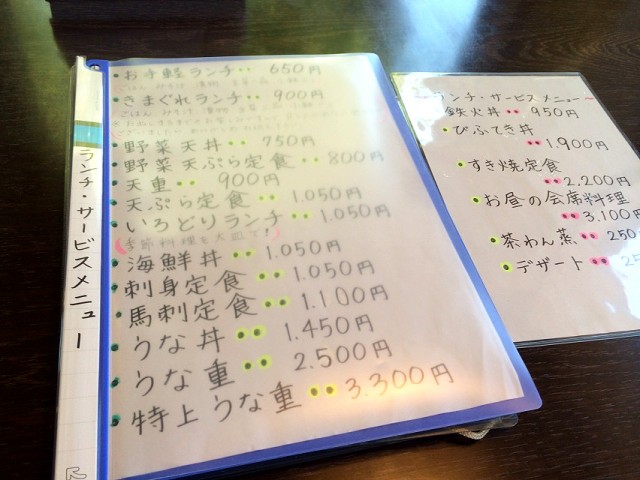 ランチ・サービスメニュー
お手軽ランチ‥ 650円
きまぐれランチ‥ 900円
野菜天丼‥ 750円
野菜天ぷら定食‥ 800円
天重‥ 900円
天ぷら定食‥ 1.050円
いろどりランチ‥ 1.050円
季節料理を大皿で!
海鮮丼‥ 1.050円
刺身定食‥ 1.050円
馬刺定食‥ 1.100円
うな丼‥ 1.450円
うな重‥ 2.500円
特上うな重‥ 3.300円
ランチ・サービスメニュー
鉄火丼‥ 950円
びふてき丼
‥1.900円
すき焼定食
‥2.200円
お昼の会席料理
‥3.100円
茶わん蒸‥ 250
デザート‥ 25